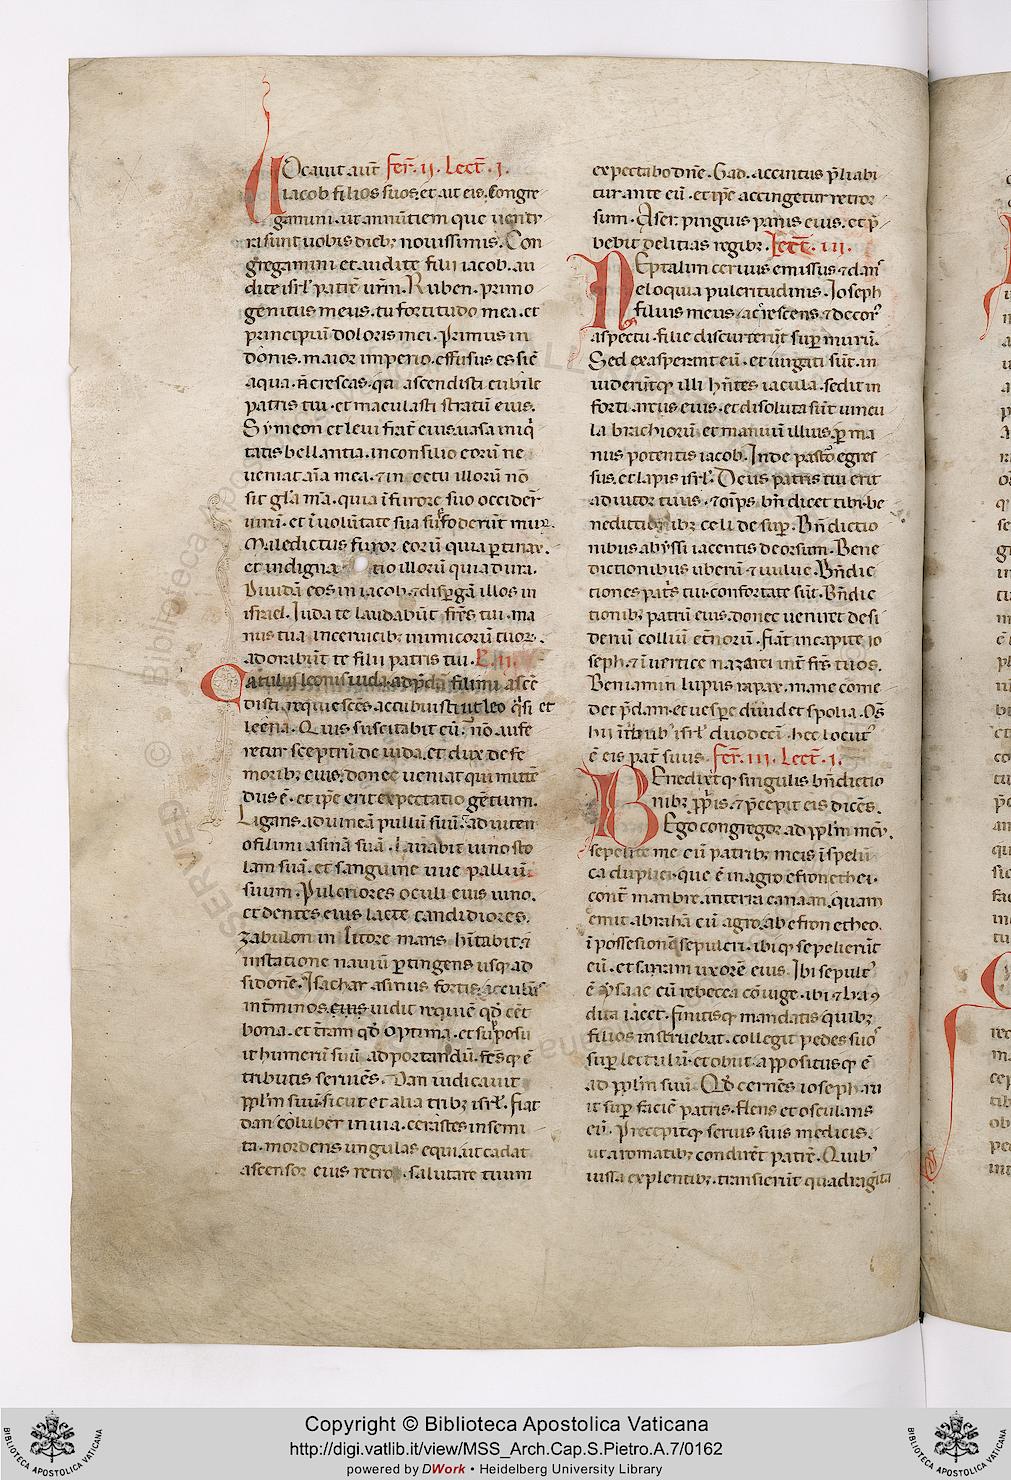 Vocauit aut̄ Fer̄. ij. Lect̄. j.
iacob filios suos. et ait eis. Congre
gamini. ut annūtiem que uentu
ra sunt uobis dieb; nouissimis. Con
gregamini et audite filii iacob. au
dite isr̄l' patrē ur̄m. Ruben. primo
genitus meus. tu fortitudo mea. et
principiū doloris mei. Primus in
donis. maior imperio. effusus es sic̄
aqua. n̄ crescas. q̄a ascendisti cubile
patris tui. et maculasti stratū eius.
Symeon et leui frat̄ eius. uasa iniq̍
tatis bellantia. inconsilio eorū ne
ueniat aīa mea. ⁊ in cetu illorū nō
sit gl̄a m̄a. quia ī furore suo occider̄
uirū. et ī volūtate sua suffoderūt mur̄.
Maledictus furor eorū quia p̱tinax.
et indigna tio illorū quia dura.
Diuidā eos in iacob. ⁊ disp̱gā illos in
isrl̄. Iuda te laudabūt fr̄es tui. ma
nus tua inceruicib; inimicorū tuor̄.
adorabūt te filii patris tui. L. ii.
Catulus leonis iuda. adp̄dā filimi ascē
disti. requiescēs accubuisti ut leo q̍si et
leena. Quis suscitabit eū. nō aufe
retur sceptrū de iuda. et dux de fe
morib; eius. donec ueniat qui mittē
dus ē. et ip̄e erit expectatio gētium.
Ligans. ad uineā pullū suū. ad uitem
o fili mi asinā suā. Lauabit uino sto
lam suā. et sanguine uue palliū.
suum. Pulcriores oculi eius uino.
et dentes eius lacte candidiores.
Zabulon in litore maris hītabit. ⁊
instatione nauiū p̱tingens usq; ad
sidonē. Isachar asinus fortis. accubās
int̄minos. eius uidit requiē qd̄ eēt
bona. et t̄ram qd̄ optima. et suposu
it humerū suū ad portandū. fc̄sq; ē
tributis seruiēs. Dan iudicauit
pp̄lm suū. sicut et alia tribꝫ isr̄l'. Fiat
dan coluber in uia. cerastes insemi
ta. mordens ungulas equi. ut cadat
ascensor eius retro. salutare tuum
expectabo dn̄e. Gad. accintus p̄liabi
tur ante eū. et ip̄e accingetur retror
sum. Aser. pinguis panis eius. et p̄
bebit delitias regib;. Lect̄. iii.
NEptalim ceruus emissus ⁊ dans
eloquia pulcritudinis. Ioseph
filius meus. acrescens. ⁊ decor'
aspectu. filie discurrerūt sup̱ murū.
Sed exasperarūt eū. et iurgati sūt. in
uiderūtq; illi hn̄tes iacula. sedit in
forti arcus eius. et disoluta sūt uincu
la brachiorū. et manuū illius. p̱ ma
nus potentis iacob. Inde pastor egres
sus. et lapis isr̄l'. Deus patris tui erit
adiutor tuus. ⁊ om̄ps. bn̄dicet tibi. be
nedictionib; celi desup̱. Bn̄dictio
nibus abyssi iacentis deorsum. Bene
dictionibus uberū ⁊ uulue. Bn̄dic
tiones patris tui. confortate sūt. Bn̄dic
tionib; patrū eius. donec ueniret desi
deriū colliū et̄norū. Fiāt incapite io
seph. ⁊ ī uertice nazarei int̄ fr̄s tuos.
Beniamin lupus rapax. mane come
det p̄dam. et uesp̱e diuidet spolia. Om̄s
hii ī tribub' isr̄l' duodecī. hec locut'
ē eis pat̄ suus. Fer̄. iii. Lect̄. j.
BEnedixitq; singulis bn̄dictio
nib; pp̄is. ⁊ p̄cepit eis dicēs.
Ego congregor ad pp̄lm meū.
sepelite me cū patrib; meis ī spelū
ca duplici. que ē in agro efron ethei.
cont̄ manbre. interra canaan. quam
emit abrahā cū agro. ab efron etheo.
ī possesionē sepulcri. ibiq; sepelierūt
eū. et sarram uxorē eius. Ibi sepult'
ē ysaac cū rebecca cōiuge. ibi ⁊ lia 9
dita iacet. Finitisq; mandatis quib;
filios instruebat. collegit pedes suos
sup̱ lectulū. et obiit. appositusq; ē
ad pp̄lm suū. Qd̄ cernēs ioseph. ru
it sup̱ faciē patris. flens et osculans
eū. Precepitq; seruis suis medicis.
ut aromatib; condirēt patrē. Quib'
iussa explentib;. transierūt quadragīta
Copyright © Biblioteca Apostolica Vaticana
http://digi.vatlib.it/view/MSS_Arch.Cap.S.Pietro.A.7/0162
powered by DWork • Heidelberg University Library